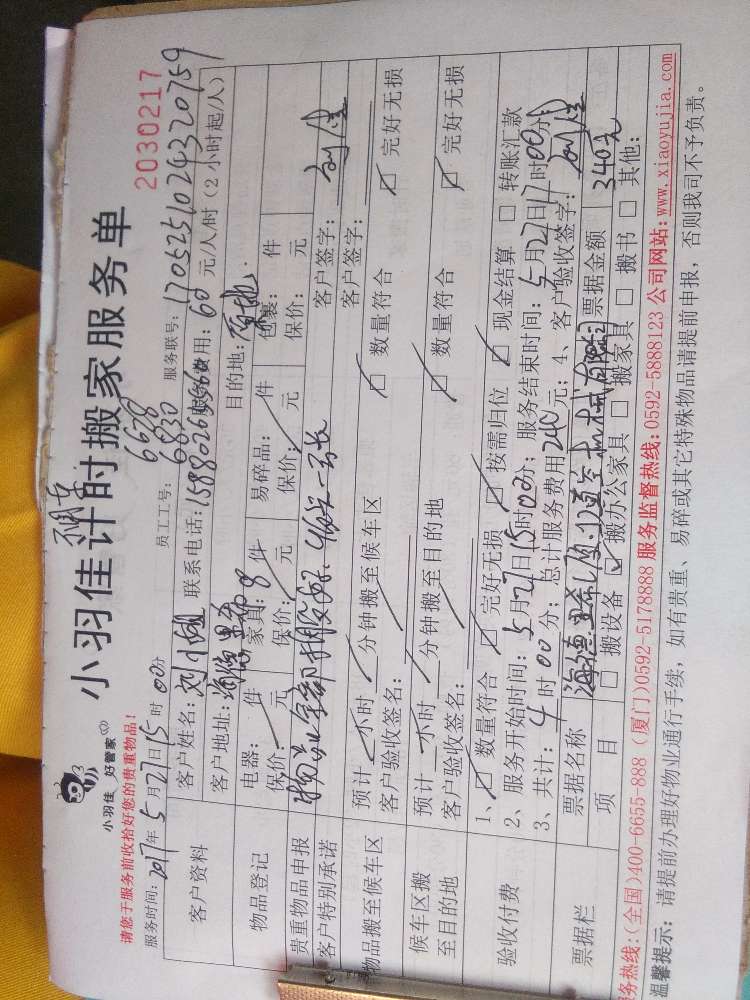 小羽佳计时搬家服务单
小羽佳 好管家
2030217
请您于服务前收拾好您的贵重物品!
6628
服务时间: 2017年5月27日15时00分 员工工号: 6830 服务联号: 1705251024320759
客户资料 客户姓名: 联系电话: 费用: 60 元/人/时(2小时起/人)
客户地址: 目的地:
物品登记 电器: 件 家具: 件 易碎品: 件 包裹: 件
保价: 元 保价: 元 保价: 元 保价: 元
贵重物品申报 客户签字:
客户特别承诺 客户签字:
物品搬至候车区 预计 小时 分钟搬至候车区 □ 数量符合 □ 完好无损
客户验收签名:
候车区搬至目的地 预计 小时 分钟搬至目的地 □ 数量符合 □ 完好无损
客户验收签名:
验收付费 1、□ 数量符合 □ 完好无损 □ 按需归位 □ 现金结算 □ 转账汇款
2、服务开始时间: 5月27日15时00分; 服务结束时间: 5月27日17时00分
3、共计: 4时00分; 总计服务费用240元; 4、客户验收签字:
票据栏 票据名称 票据金额 340元
项目 □ 搬设备 □ 搬办公家具 □ 搬家具 □ 搬书 □ 其他:
务热线:(全国)400-6655-888 (厦门)0592-5178888 服务监督热线:0592-5888123 公司网站: www.xiaoyujia.com
温馨提示: 请提前办理好物业通行手续, 如有贵重、易碎或其它特殊物品请提前申报, 否则我司不予负责。